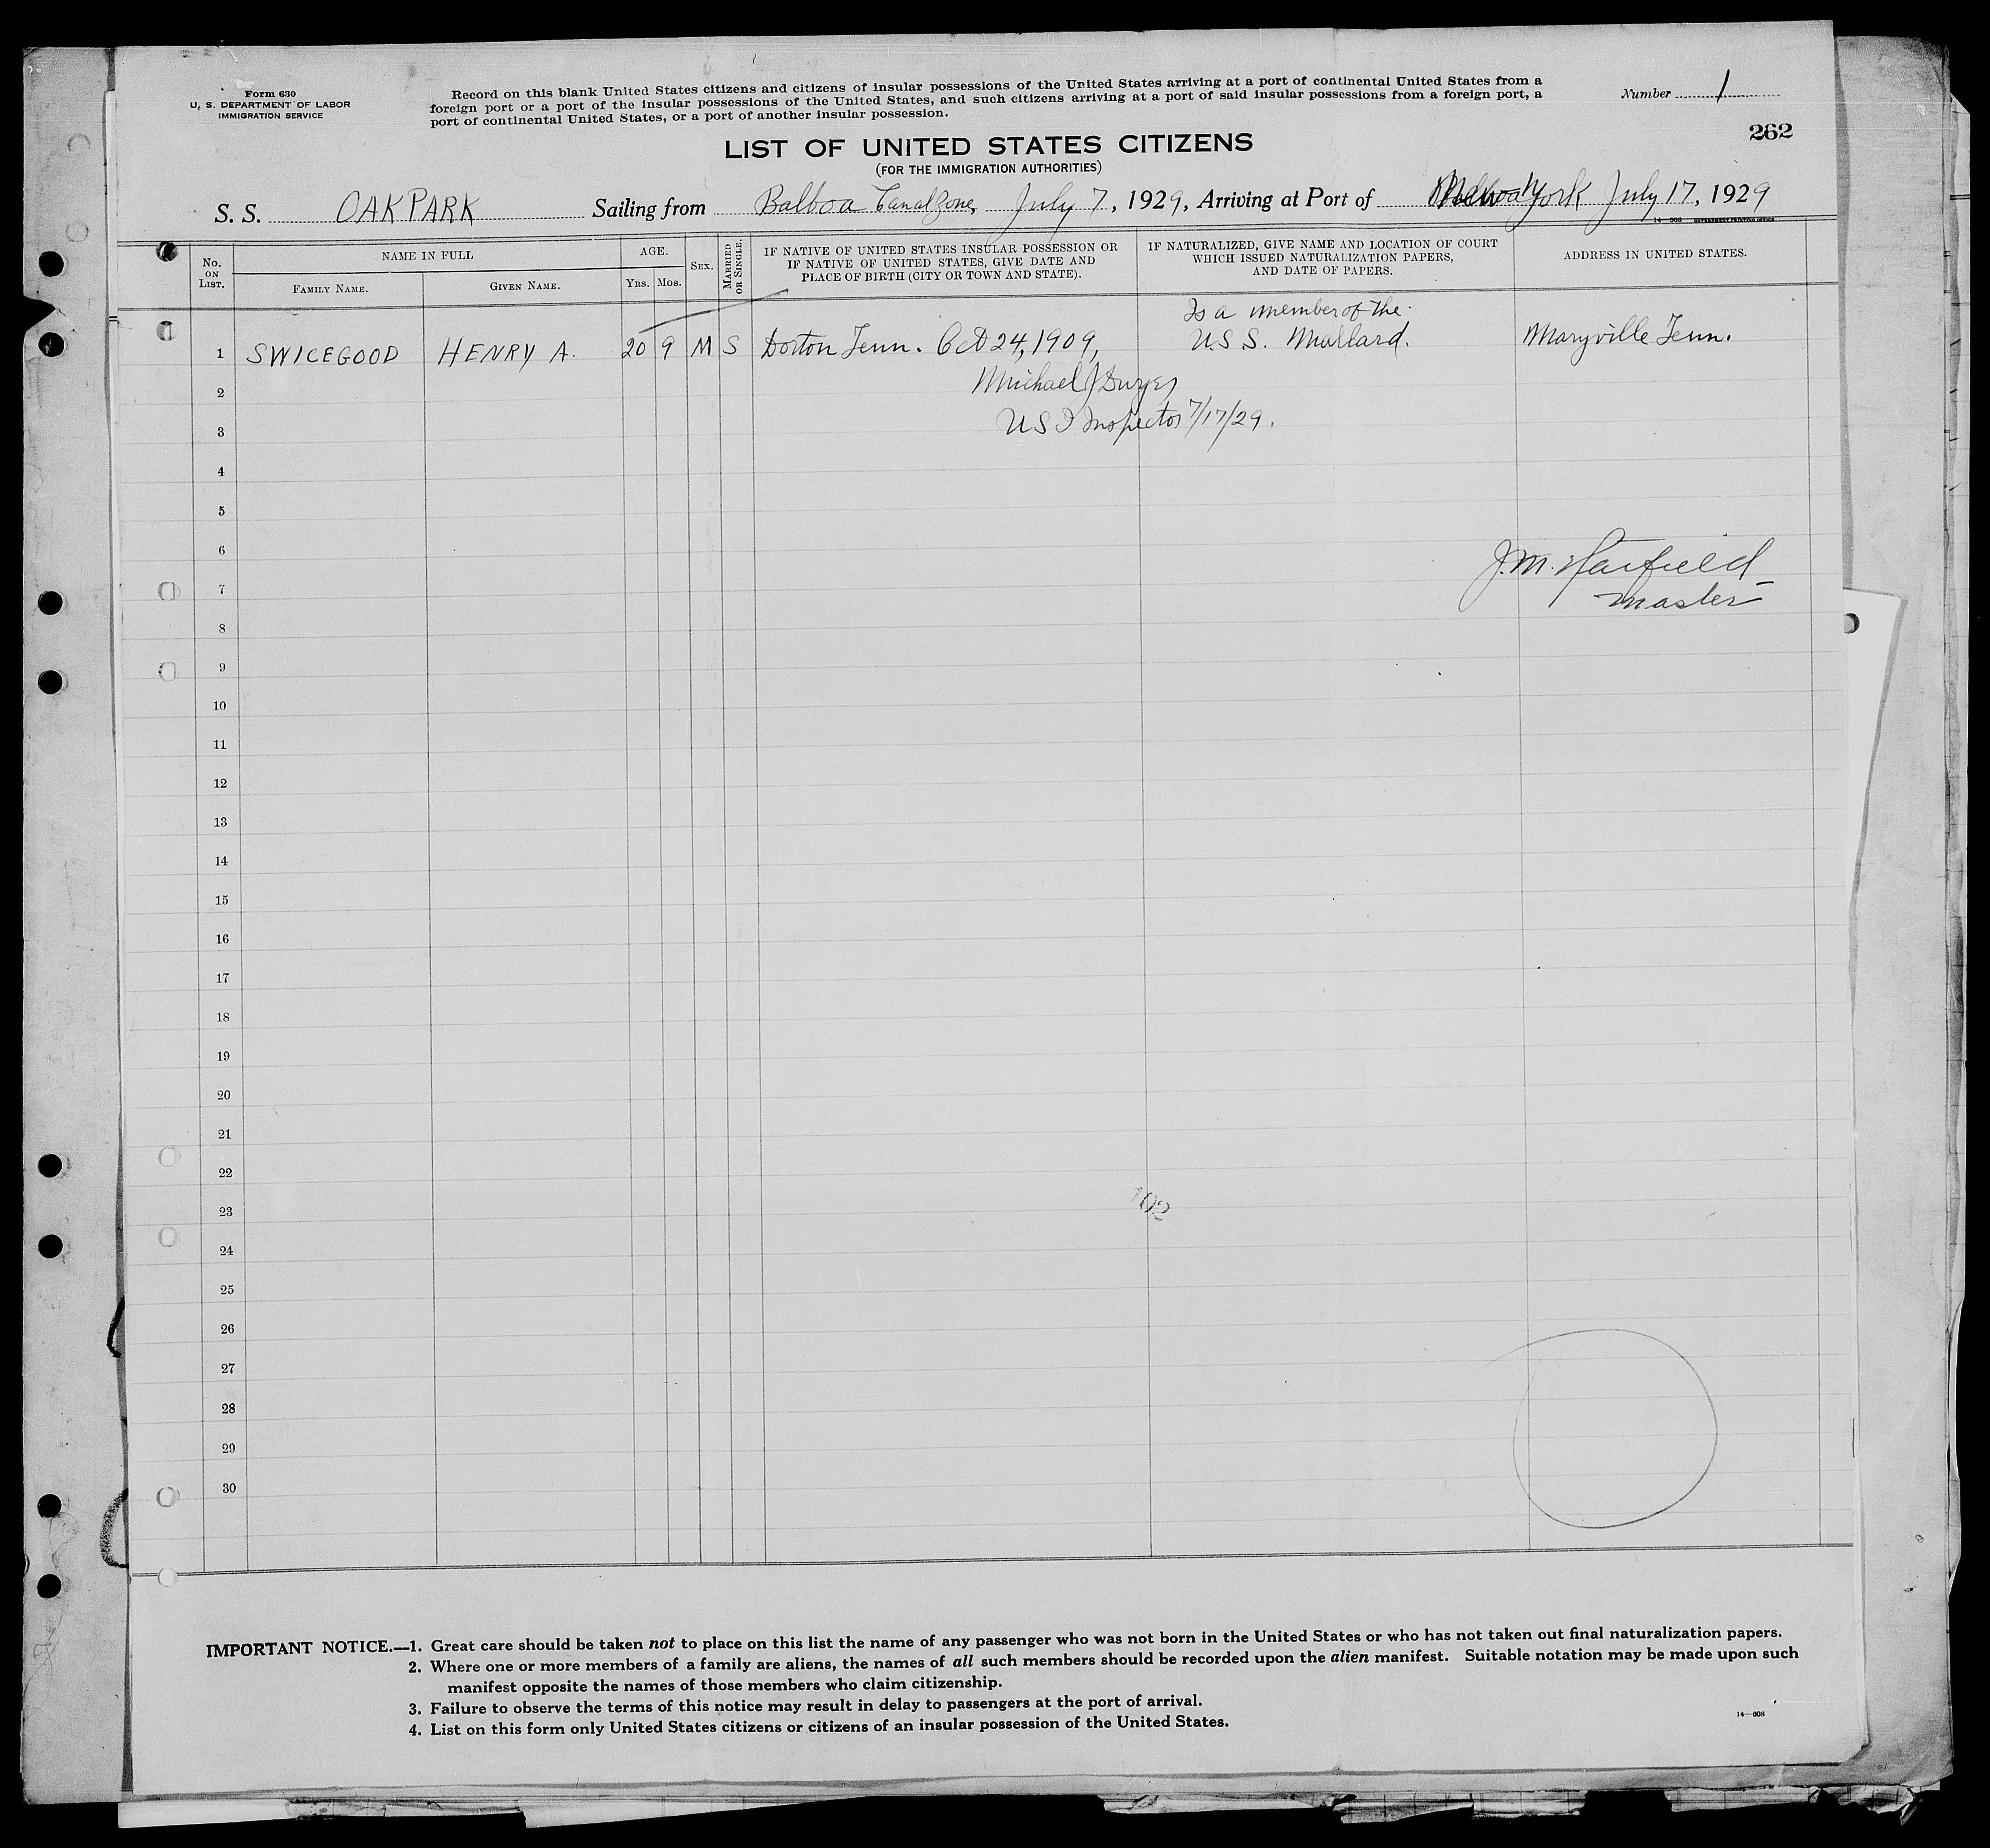 Form 630
U. S. DEPARTMENT OF LABOR
IMMIGRATION SERVICE
Record on this blank United States citizens and citizens of insular possessions of the United States arriving at a port of continental United States from a
foreign port or a port of the insular possessions of the United States, and such citizens arriving at a port of said insular possessions from a foreign port, a
port of continental United States, or a port of another insular possession.
Number 1
262
LIST OF UNITED STATES CITIZENS
(FOR THE IMMIGRATION AUTHORITIES)
S. S. OAK PARK Sailing from Balboa Canal Zone, July 7, 1929, Arriving at Port of York July 17, 1929
14—608 GOVERNMENT PRINTING OFFICE
No. ON LIST.
NAME IN FULL
FAMILY NAME.
GIVEN NAME.
AGE.
YRS. MOS.
SEX.
MARRIED OR SINGLE.
IF NATIVE OF UNITED STATES INSULAR POSSESSION OR
IF NATIVE OF UNITED STATES, GIVE DATE AND
PLACE OF BIRTH (CITY OR TOWN AND STATE).
IF NATURALIZED, GIVE NAME AND LOCATION OF COURT
WHICH ISSUED NATURALIZATION PAPERS,
AND DATE OF PAPERS.
ADDRESS IN UNITED STATES.
Is a member of the
1 SWICEGOOD HENRY A. 20 9 M S Dorton Tenn. Oct 24, 1909, U.S.S. Mallard. Maryville Tenn.
2 Michael J Dwyer
3 US I Inspector 7/17/29.
4
5
6 J. M. Hatfield
7 master
8
9
10
11
12
13
14
15
16
17
18
19
20
21
22
23 102
24
25
26
27
28
29
30
IMPORTANT NOTICE.—1. Great care should be taken not to place on this list the name of any passenger who was not born in the United States or who has not taken out final naturalization papers.
2. Where one or more members of a family are aliens, the names of all such members should be recorded upon the alien manifest. Suitable notation may be made upon such
manifest opposite the names of those members who claim citizenship.
3. Failure to observe the terms of this notice may result in delay to passengers at the port of arrival.
4. List on this form only United States citizens or citizens of an insular possession of the United States.
14—608